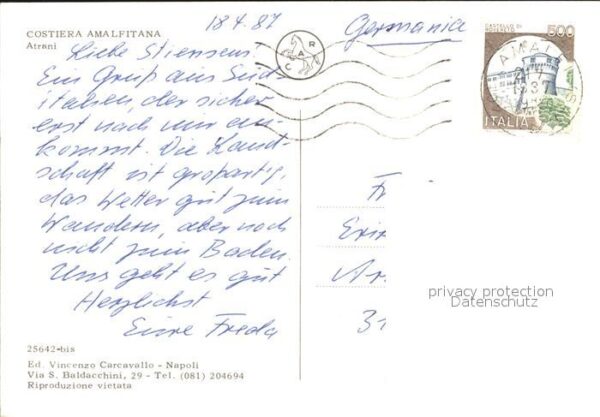 COSTIERA AMALFITANA
Atrani
18.4.87
Liebe Stiensens!
Ein Gruß aus Süd
italien, der sicher
erst nach mir an-
kommt. Die Land-
schaft ist großartig,
das Wetter gut zum
Wandern, aber noch
nicht zum Baden.
Uns geht es gut
Herzlichst
Eure Freda
25642-bis
Ed. Vincenzo Carcavallo - Napoli
Via S. Baldacchini, 29 - Tel. (081) 204694
Riproduzione vietata
CAR
Germania
CASTELLO DI
ROVERETO
500
ITALIA
Fr
Ar
31
privacy protection
Datenschutz